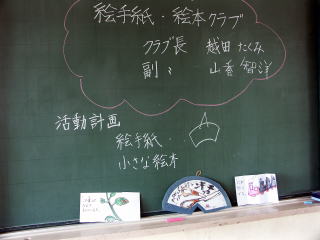 絵手紙・絵本クラブ
クラブ長 越田 たくみ
副〃 山香 智洋
活動計画
絵手紙
小さな絵本